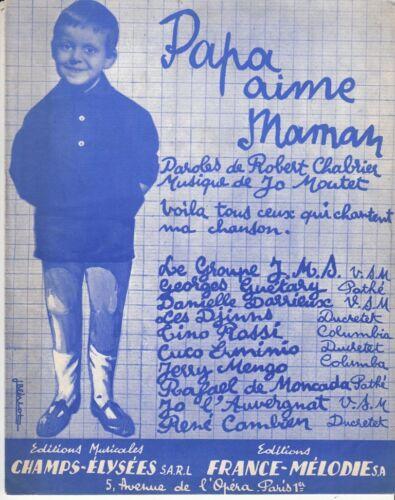 Papa
aime
Maman
Paroles de Robert Chabrier
Musique de Jo Moutet
Voila tous ceux qui chantent
ma chanson.
Le Groupe J.M.S. V.S.M
Georges Guétary Pathé
Danielle Darrieux V.S.M
Les Djinns Ducretet
Tino Rossi Columbia
Cuco Erminio Ducretet
Jerry Mengo Columba
Rafael de Moncada Pathé
Jo l'Auvergnat V.S.M
René Cambien Ducretet
Editions Musicales
CHAMPS-ÉLYSÉES S.A.R.L
Editions
FRANCE-MÉLODIE S.A
5, Avenue de l'Opéra Paris 1er